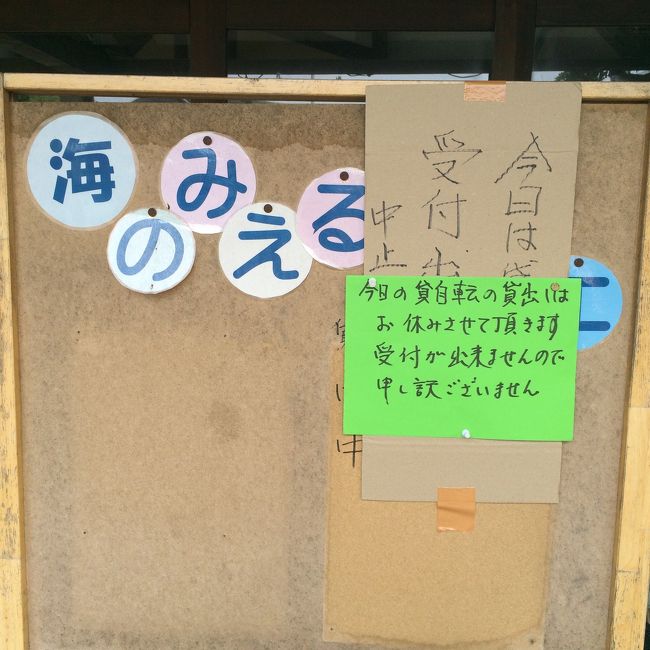 海のみえる
ニ
今日は
受付出
中止
今日の貸自転の貸出しは
お休みさせて頂きます
受付が出来ませんので
申し訳ございません
中